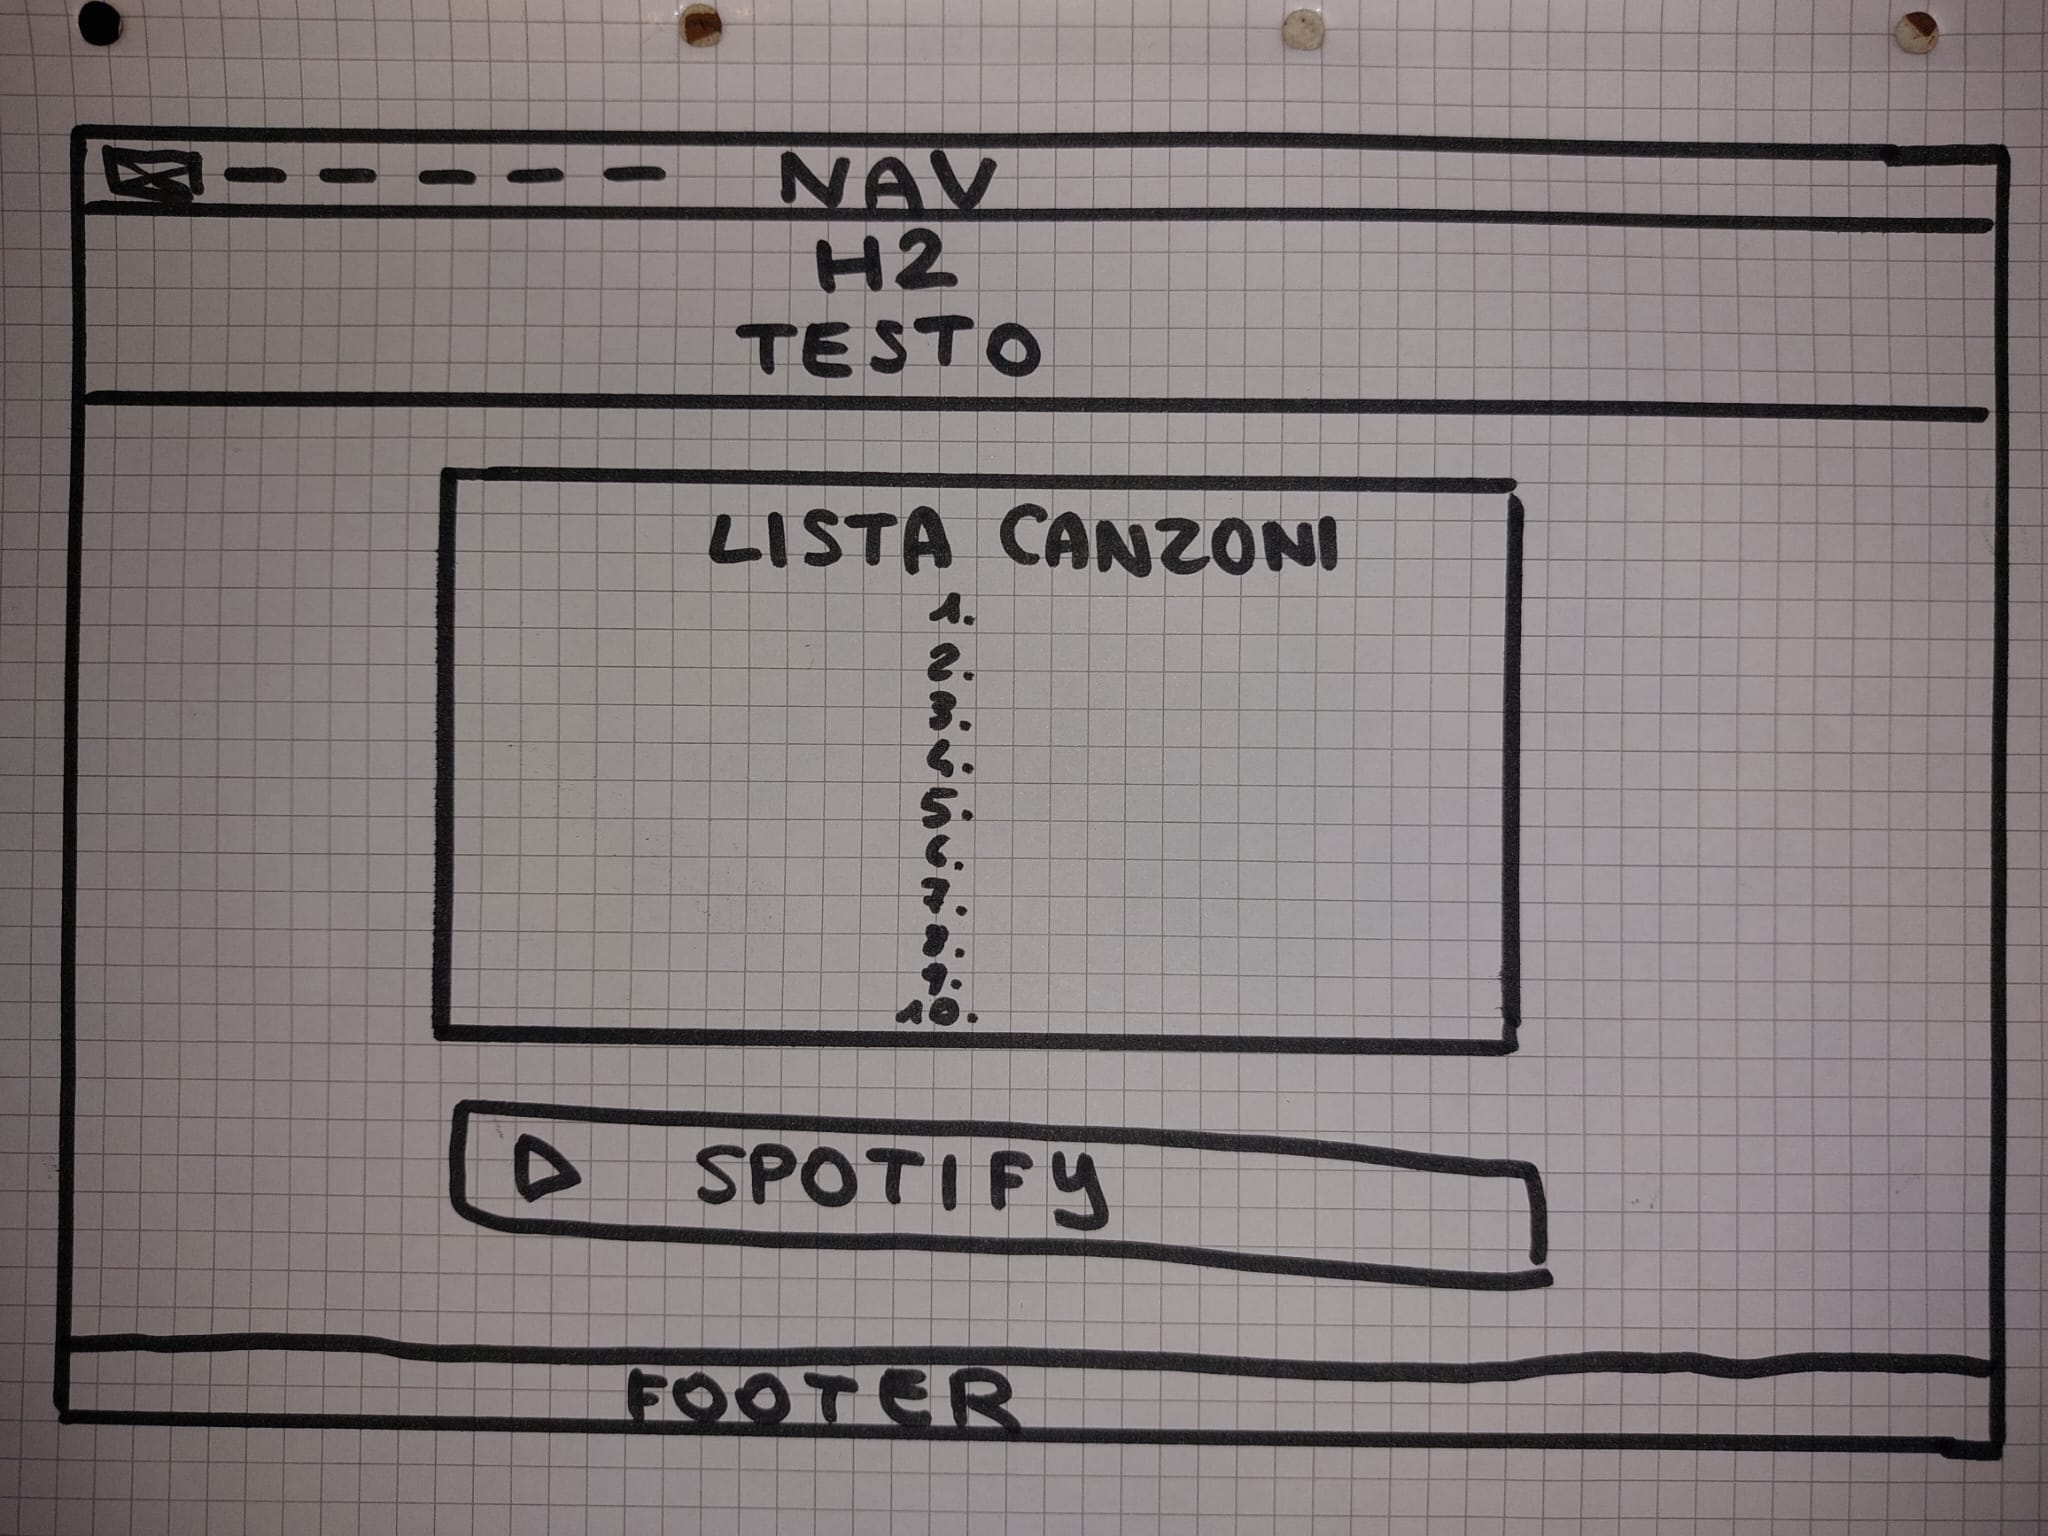 NAV
H2
TESTO
LISTA CANZONI
1.
2.
3.
4.
5.
6.
7.
8.
9.
10.
SPOTIFY
FOOTER